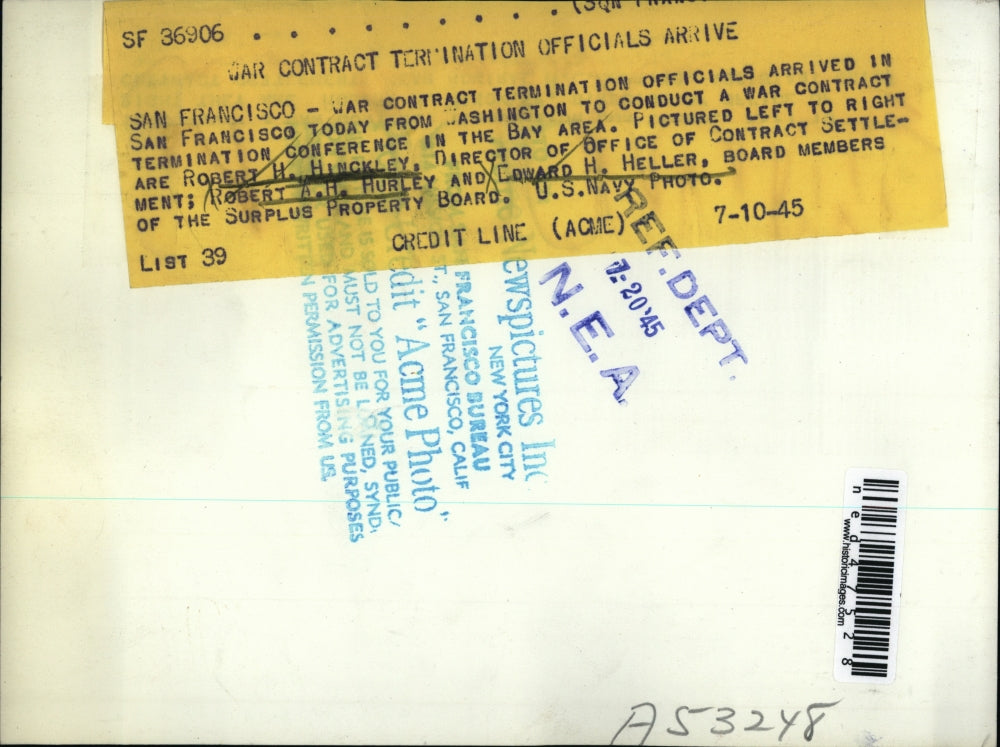 SF 36906 . . . . . . . . . (SAN
WAR CONTRACT TERMINATION OFFICIALS ARRIVE
SAN FRANCISCO - WAR CONTRACT TERMINATION OFFICIALS ARRIVED IN
SAN FRANCISCO TODAY FROM WASHINGTON TO CONDUCT A WAR CONTRACT
TERMINATION CONFERENCE IN THE BAY AREA. PICTURED LEFT TO RIGHT
ARE ROBERT H. HINCKLEY, DIRECTOR OF OFFICE OF CONTRACT SETTLE-
MENT; ROBERT A.H. HURLEY AND EDWARD H. HELLER, BOARD MEMBERS
OF THE SURPLUS PROPERTY BOARD. U.S.NAVY PHOTO.
CREDIT LINE (ACME) 7-10-45
LIST 39
REF. DEPT.
7-20'45
N.E.A.
ewspictures Inc
NEW YORK CITY
FRANCISCO BUREAU
ST., SAN FRANCISCO, CALIF
edit "Acme Photo"
IS SOLD TO YOU FOR YOUR PUBLIC/
AND MUST NOT BE LOANED, SYNDI
USED FOR ADVERTISING PURPOSES
RITTEN PERMISSION FROM US.
ned47528
www.historicimages.com
A53248